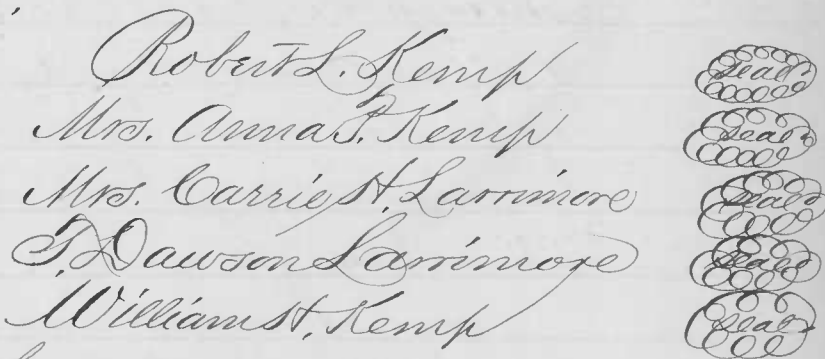 Robert L. Kemp seal
Mrs. Anna P. Kemp seal
Mrs. Carrie H. Larrimore seal
T. Dawson Larrimore seal
William H. Kemp seal